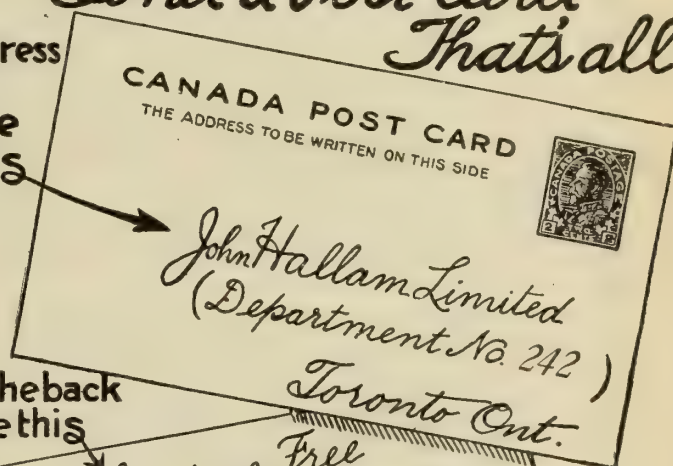 That's all
ress
CANADA POST CARD
THE ADDRESS TO BE WRITTEN ON THIS SIDE
CANADA POSTAGE
2 2
e
s
John Hallam Limited
(Department No. 242)
Toronto Ont.
he back
e this
Free